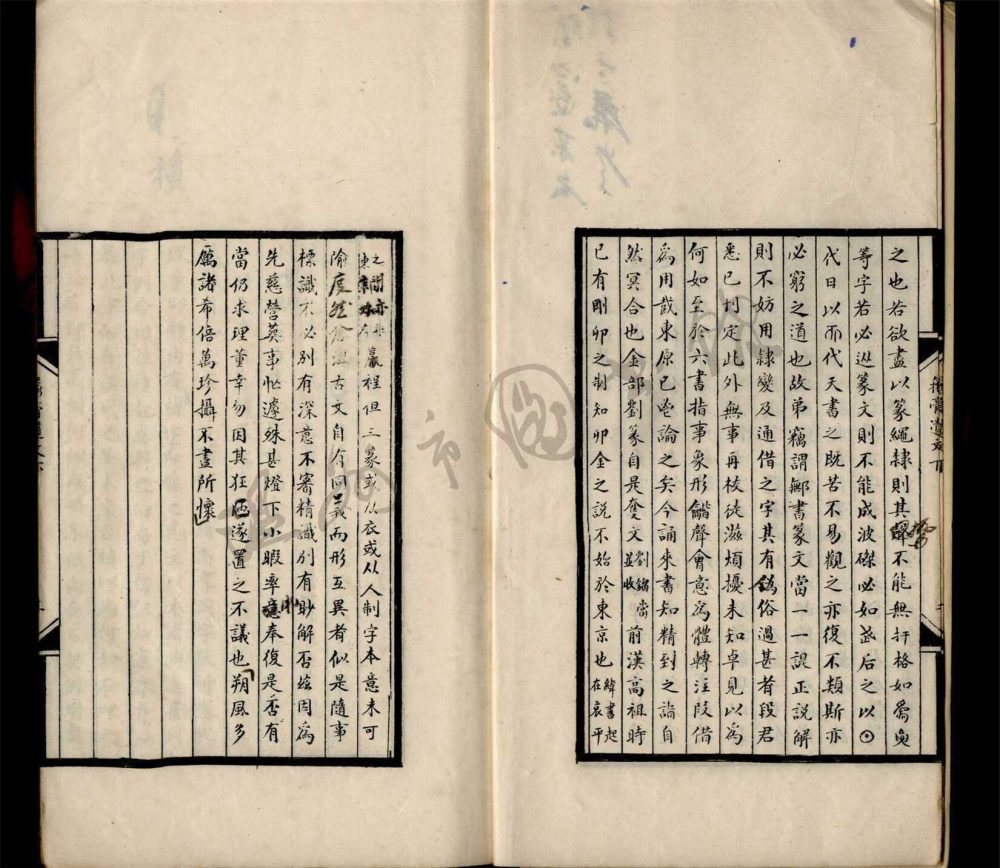 之也若欲盡以篆繩隸則其勢不能無扞格如爲與
等字若必從篆文則不能成波磔必如武后之以⊙
代日以而代天書之既苦不易觀之亦復不類斯亦
必窮之道也故弟竊謂鄦書篆文當一一諟正說解
則不妨用隸變及通借之字其有譌俗過甚者段君
悉已刊定此外無事再校徒滋煩擾未知卓見以爲
何如至於六書指事象形龤聲會意爲體轉注叚借
爲用戴東原已論之矣今誦來書知精到之詣自
然冥合也金部劉篆自是奪文劉鎦當並收前漢高祖時
已有剛卯之制知卯金之說不始於東京也緯書起在哀平
之間亦非東京始有羸裎但三篆或从衣或从人制字本意未可
隃度然倉沮古文自有同義而形互異者似是隨事
標識不必別有深意不審精識別有眇解否茲因爲
先慈營葬事怱遽殊甚燈下小暇率意奉復是否有
當仍求理董幸勿因其狂遂置之不議也朔風多
厲諸希倍萬珍攝不盡所懷